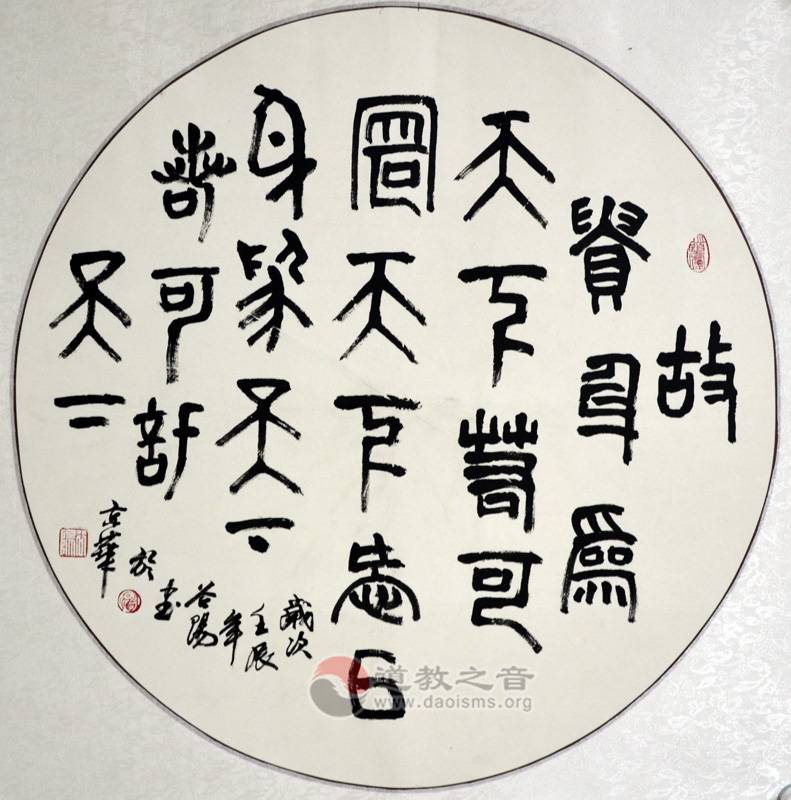 故
貴身為
天下若可
天下愛以
身為天下
若可託
天下
歲次
壬辰
年
谷陽
書
於
京華
道教之音
www.daoisms.org